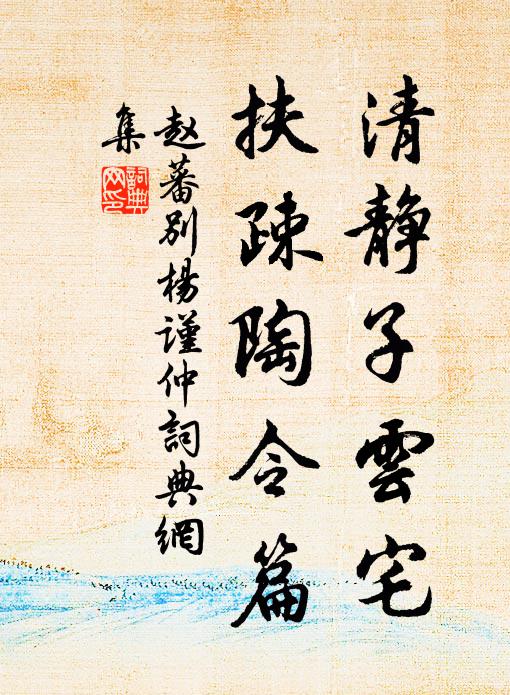 清静子雲宅
扶疎陶令篇
赵蕃别楊谨仲詞典網
集
詞典
网印